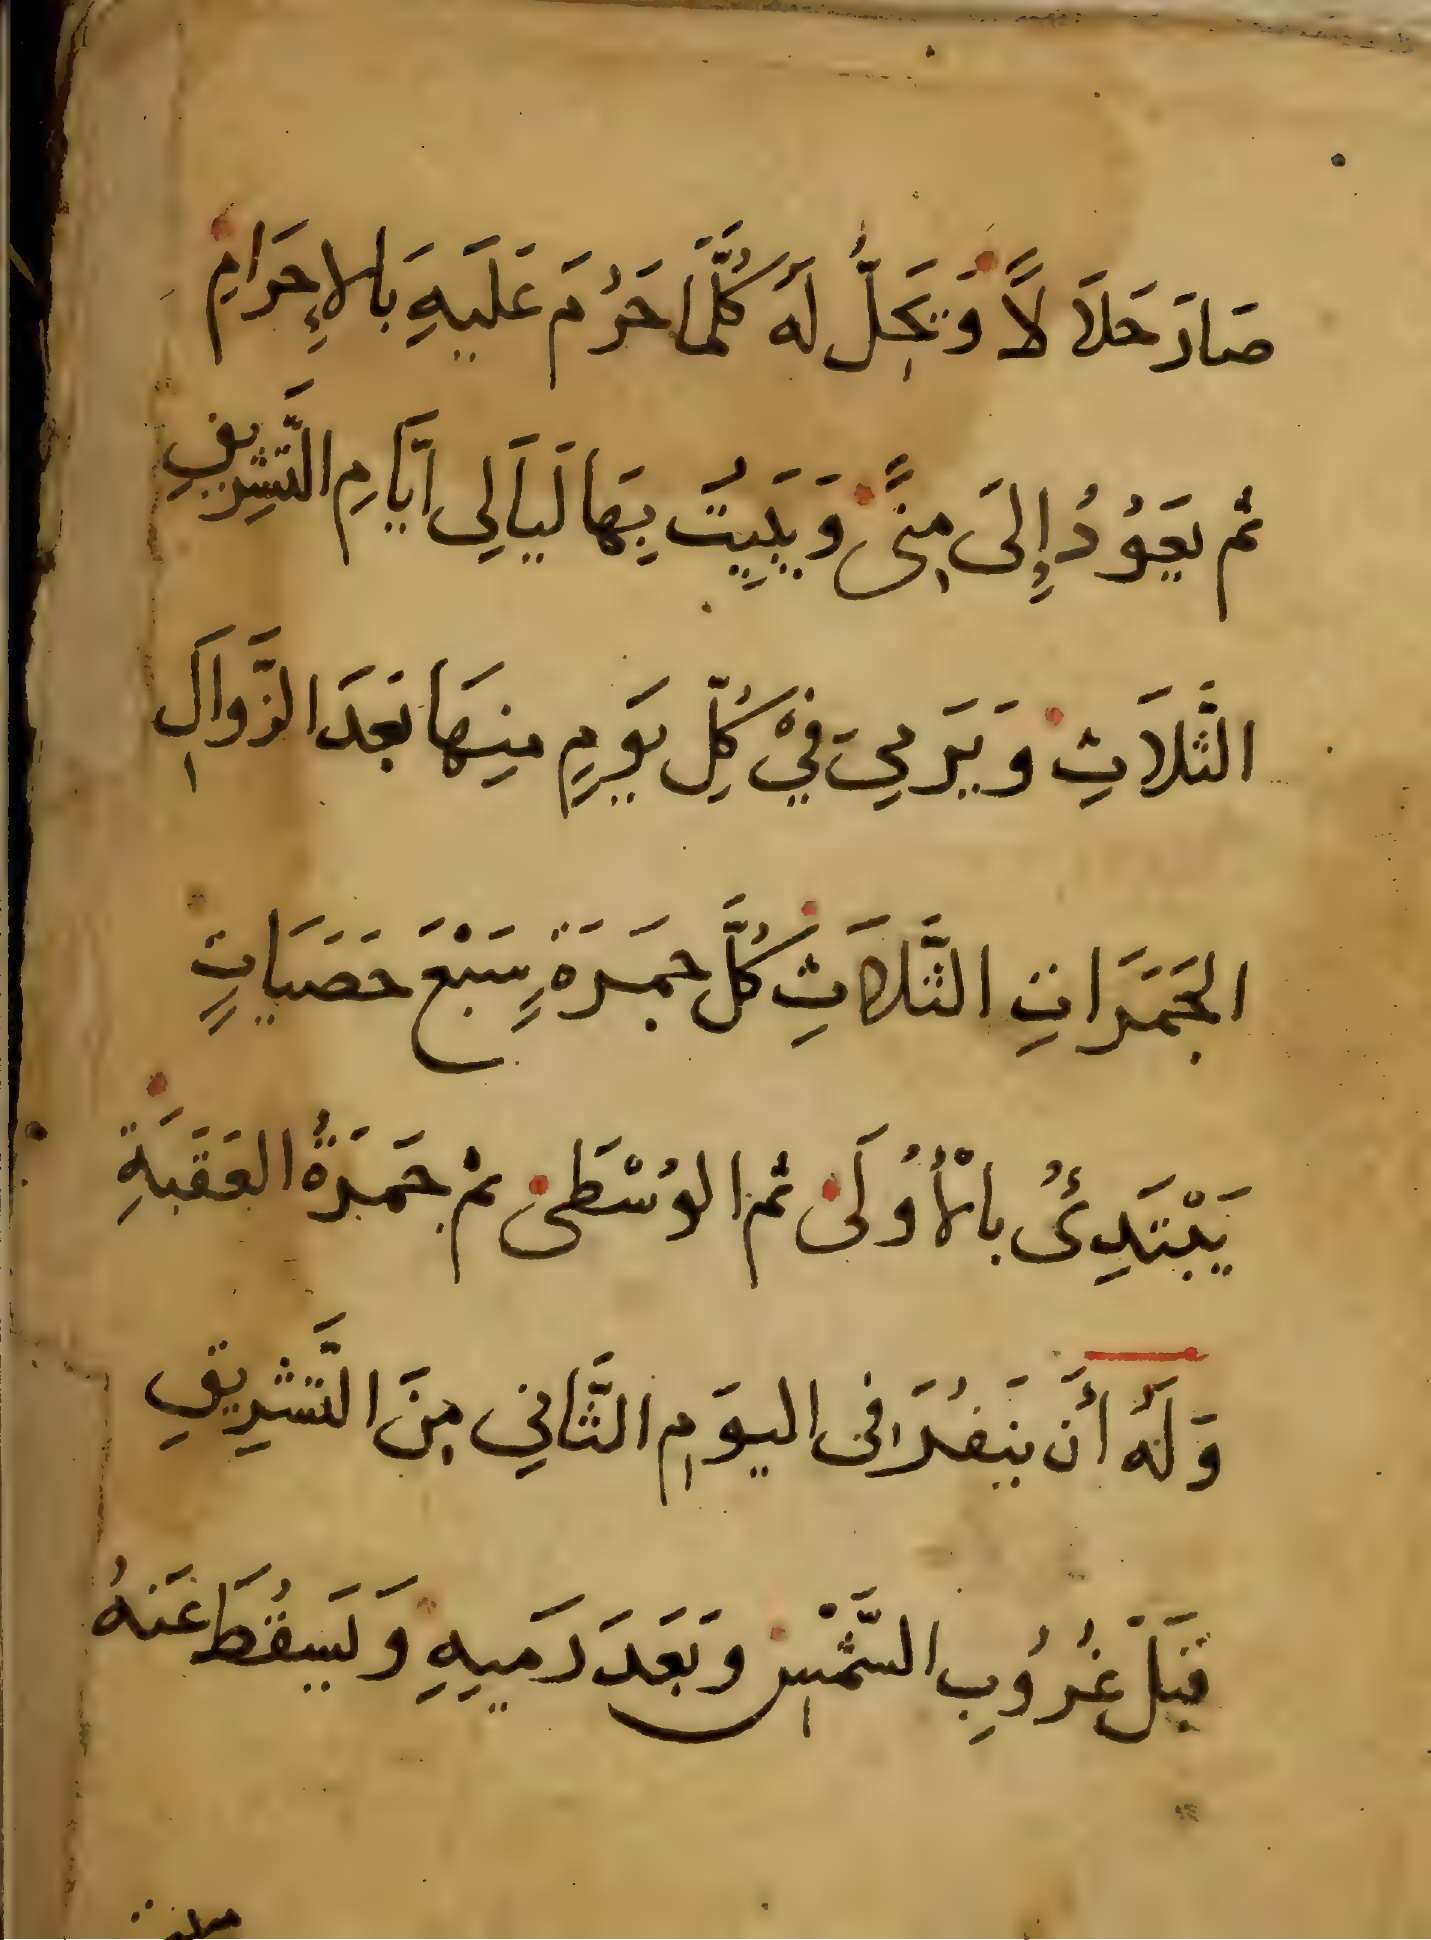 صَارَ حَلَالًا وَيَحِلُّ لَهُ كُلَّمَا حَرُمَ عَلَيهِ بَالإِحرَامِ
ثم يَعَوُدُ إِلَى مِنًى وَيَبِيتُ بِهَا لَيَالِى ايَّامِ التَّشرِيقِ
الثَّلاَثِ وَيَرَمِى فِيْ كُلِّ يَومٍ مِنهَا بَعدَ الزَّوالِ
الجَمَرَاتِ الثَّلاَثِ كُلَّ جمَرَةٍ سَبْعَ حَصَيَاتٍ
يَبْتَدِئُ بالْأُولَى ثم الوُسْطَى ثم جَمَرَةُ العَقَبَةِ
وَلَهُ أَن يَنفُرَ فى اليَومِ الثَّانِي مِنَ التَّشرِيقِ
قَبَلَ غُرُوبِ الشَّمْسِ وبَعَدَ رَميِهِ وَيَسقُطَ عَنهُ